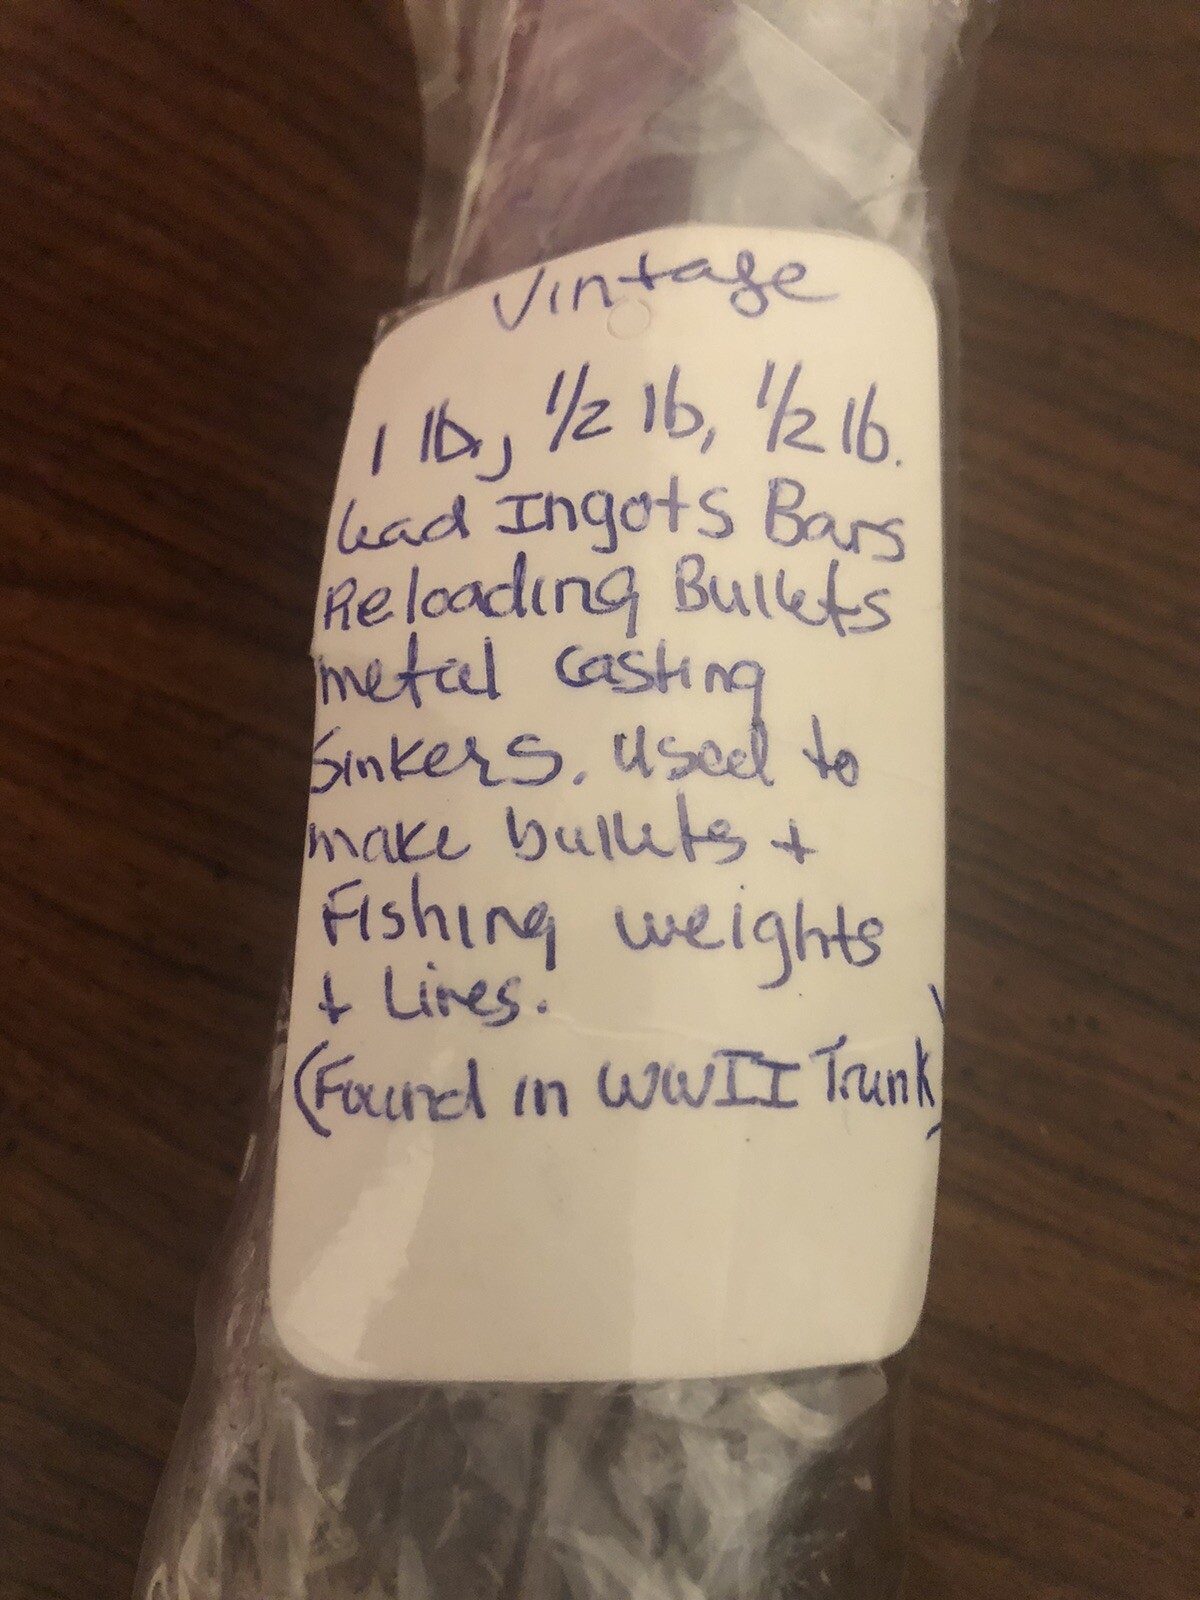 Vintage
1 lb, 1/2 lb, 1/2 lb.
Lead Ingots Bars
Reloading Bullets
metal casting
Sinkers. Used to
make bullets +
Fishing weights
+ Lines.
(Found in WWII Trunk)